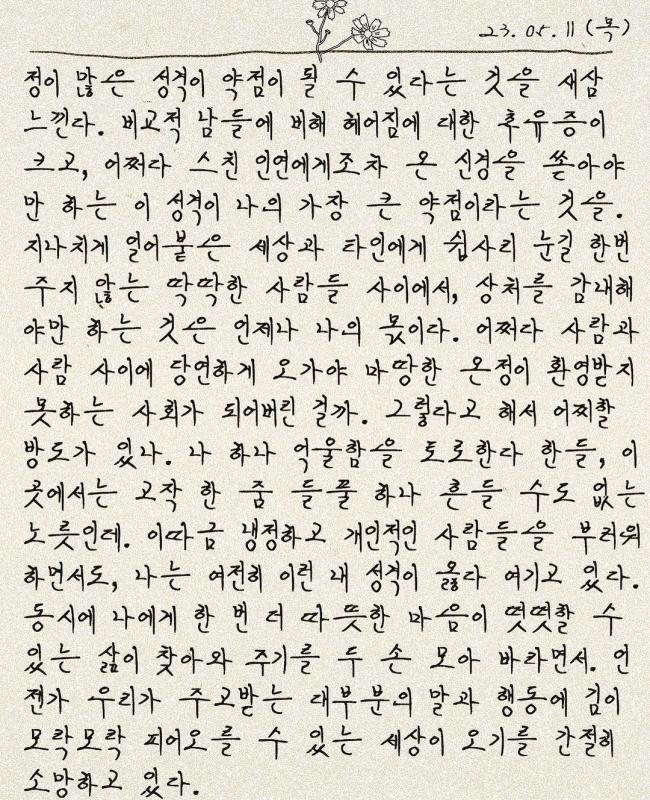 23.05.11 (목)
정이 많은 성격이 약점이 될 수 있다는 것을 새삼
느낀다. 비교적 남들에 비해 헤어짐에 대한 후유증이
크고, 어쩌다 스친 인연에게조차 온 신경을 쏟아야
만 하는 이 성격이 나의 가장 큰 약점이라는 것을.
지나치게 얼어붙은 세상과 타인에게 쉽사리 눈길 한번
주지 않는 딱딱한 사람들 사이에서, 상처를 감내해
야만 하는 것은 언제나 나의 몫이다. 어쩌다 사람과
사람 사이에 당연하게 오가야 마땅한 온정이 환영받지
못하는 사회가 되어버린 걸까. 그렇다고 해서 어찌할
방도가 있나. 나 하나 억울함을 토로한다 한들, 이
곳에서는 고작 한 줌 들풀 하나 흔들 수도 없는
노릇인데. 이따금 냉정하고 개인적인 사람들을 부러워
하면서도, 나는 여전히 이런 내 성격이 옳다 여기고 있다.
동시에 나에게 한 번 더 따뜻한 마음이 떳떳할 수
있는 삶이 찾아와 주기를 두 손 모아 바라면서. 언
젠가 우리가 주고받는 대부분의 말과 행동에 김이
모락모락 피어오를 수 있는 세상이 오기를 간절히
소망하고 있다.